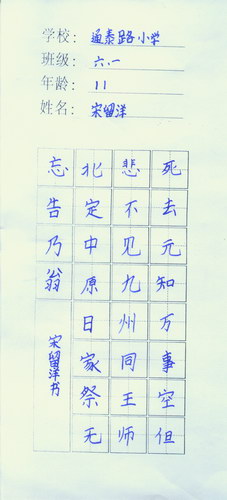 学校：通泰路小学
班级：六.一
年龄：11
姓名：宋留洋
死去元知万事空但
悲不见九州同王师
北定中原日家祭无
忘告乃翁
宋留洋书